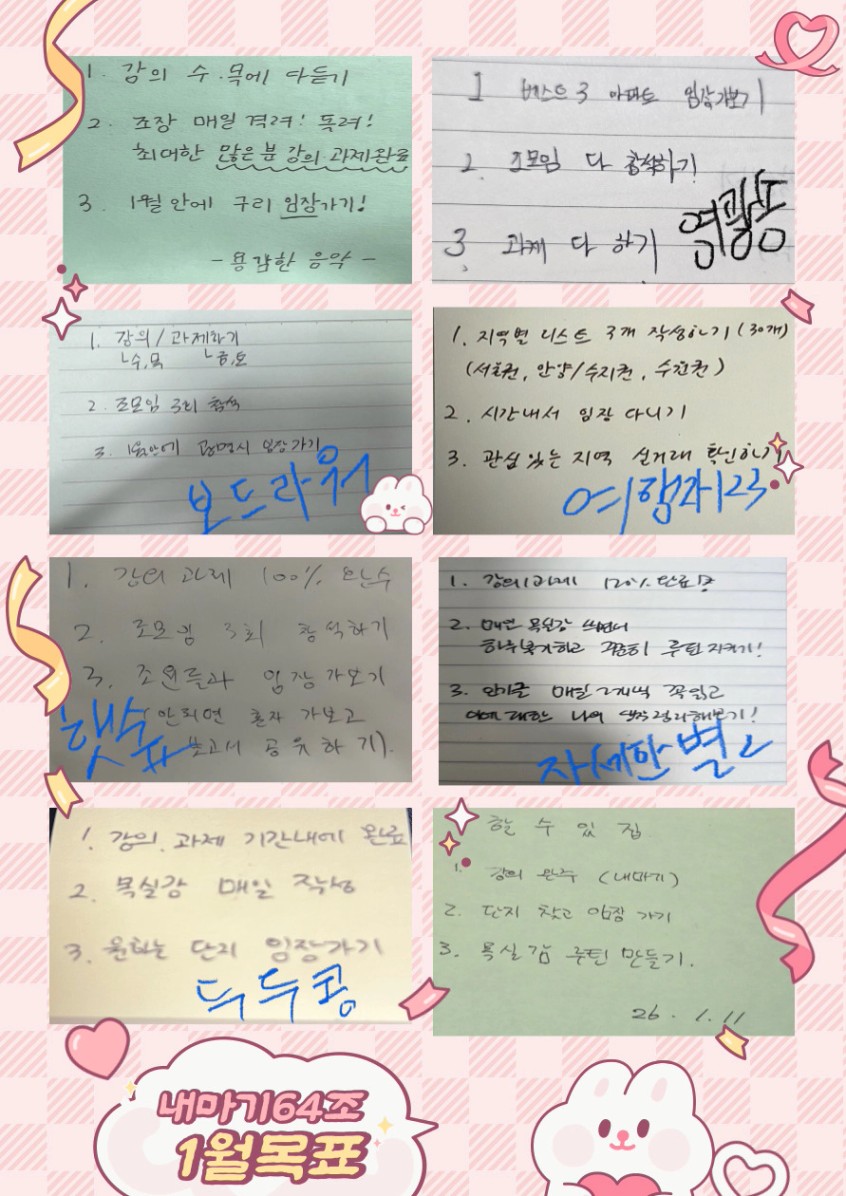 1. 강의 수.목에 다듣기
2. 조장 매일 격려! 독려!
최대한 많은분 강의 과제완료
3. 1월 안에 구리 임장가기!
- 용감한 음악 -
1 베스트3 아파트 임장가보기
2. 조모임 다 참석하기
3. 과제 다 하기
영광동
1. 강의/과제하기
ㄴ수,목 ㄴ금,토
2. 조모임 3회 참석
3. 1월안에 광명시 임장가기
보드라워
1. 지역별 리스트 3개 작성하기 (30개)
(서울권, 안양/수지권, 수원권)
2. 시간내서 임장 다니기
3. 관심 있는 지역 실거래 확인하기
여행자123
1. 강의 과제 100% 완수
2. 조모임 3회 참석하기
3. 조원들과 임장 가보기
(안되면 혼자 가보고
보고서 공유하기).
햇슈
1. 강의/과제 120% 완료!
2. 매일 목실감 쓰면서
하루복기하고 꾸준히 루틴 지키기!
3. 매일 2개씩 꼭 읽고
대한 나의 생각 정리해보기!
자세한별
1. 강의, 과제 기간내에 완료
2. 목실감 매일 작성
3. 원하는 단지 임장가기
두두콩
할 수 있 집
1. 강의 완주 (내마기)
2. 단지 찾고 임장 가기
3. 목실감 루틴 만들기.
26. 1. 11
내마기64조
1월목표